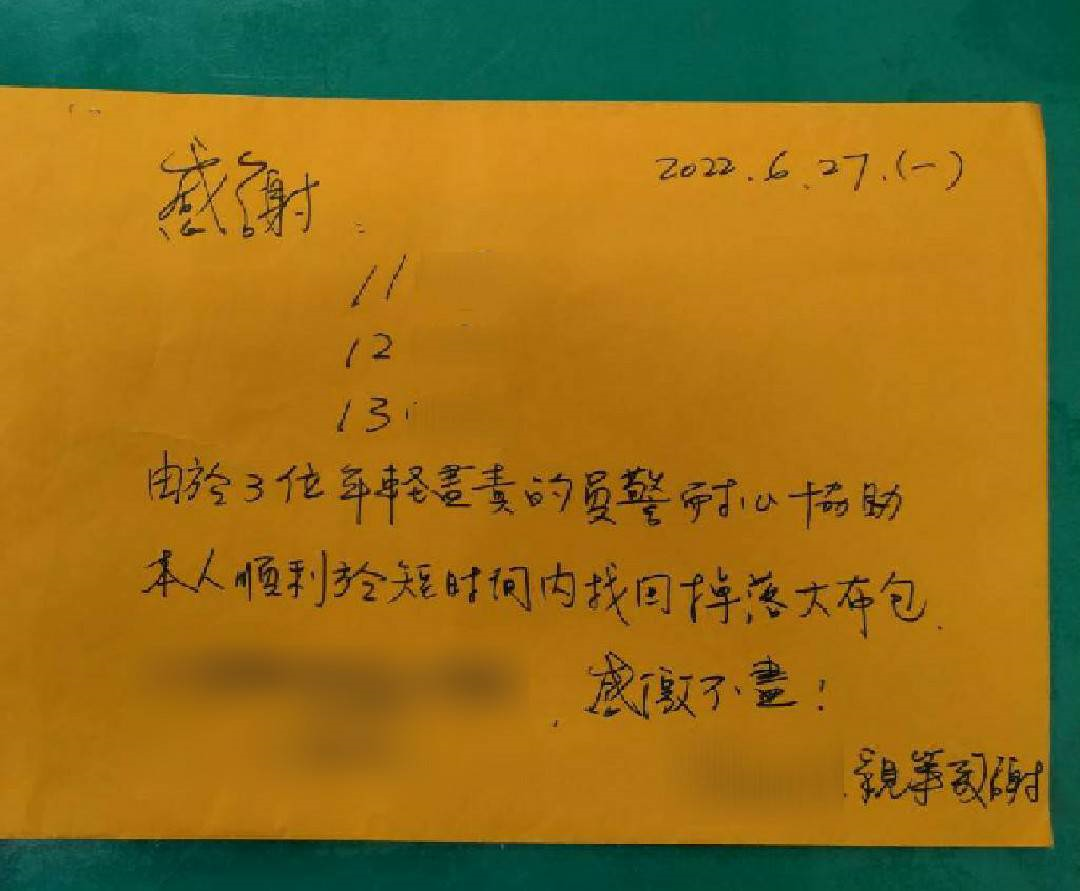 感謝：
2022.6.27.(一)
11
12
13
由於3位年輕盡責的員警耐心協助
本人順利於短时间内找回掉落大布包.
感激不盡！
親筆致謝